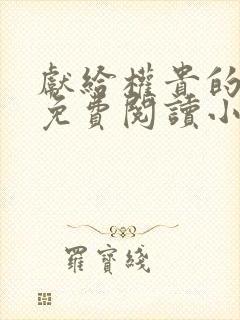 獻給權貴的
免費閱讀小
羅寶綫